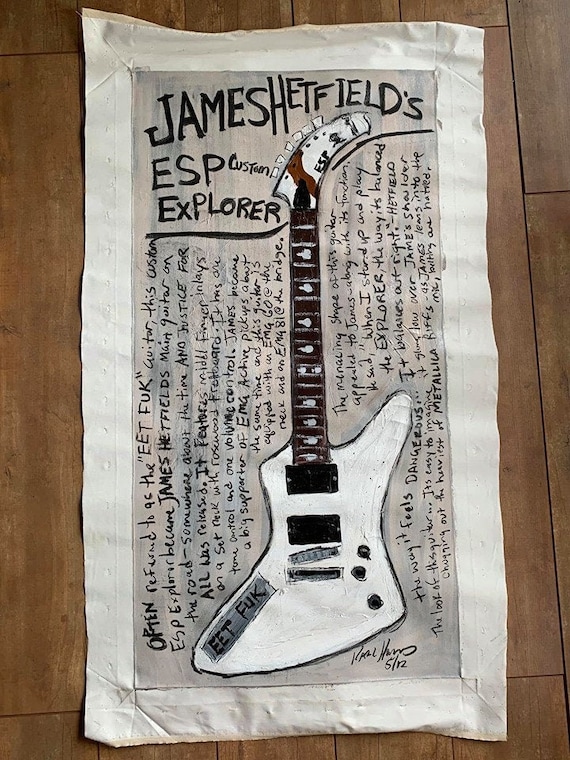 JAMES HETFIELD's
ESP CUSTOM
EXPLORER
ESP
OFTEN referred to as the "EET FUK" guitar this custom
ESP Explorer became JAMES HETFIELDS Main guitar on
the road - somewhere about the time AND JUSTICE FOR
ALL was released. It Features middle Finger inlays
on a Set neck with rosewood Fretboard. It has one
tone control and one volume control. JAMES became
a big supporter of EMG Active pickups about
the same time and this guitar is
equipped with an EMG 60 @ the
neck and an EMG 81 @ the bridge.
The menacing shape of this guitar
appealed to James - along with its function.
He said, "When I stand up and play
the EXPLORER, the way its balanced
It balances out right" - HETFIELD
the way it feels DANGEROUS...
it slung low over James's shoulder
The look of this guitar... Its easy to imagine
as James leans into the mic
chugging out the heaviest of METALLICA RIFFS -
belting are hatred.
EET FUK
5/12